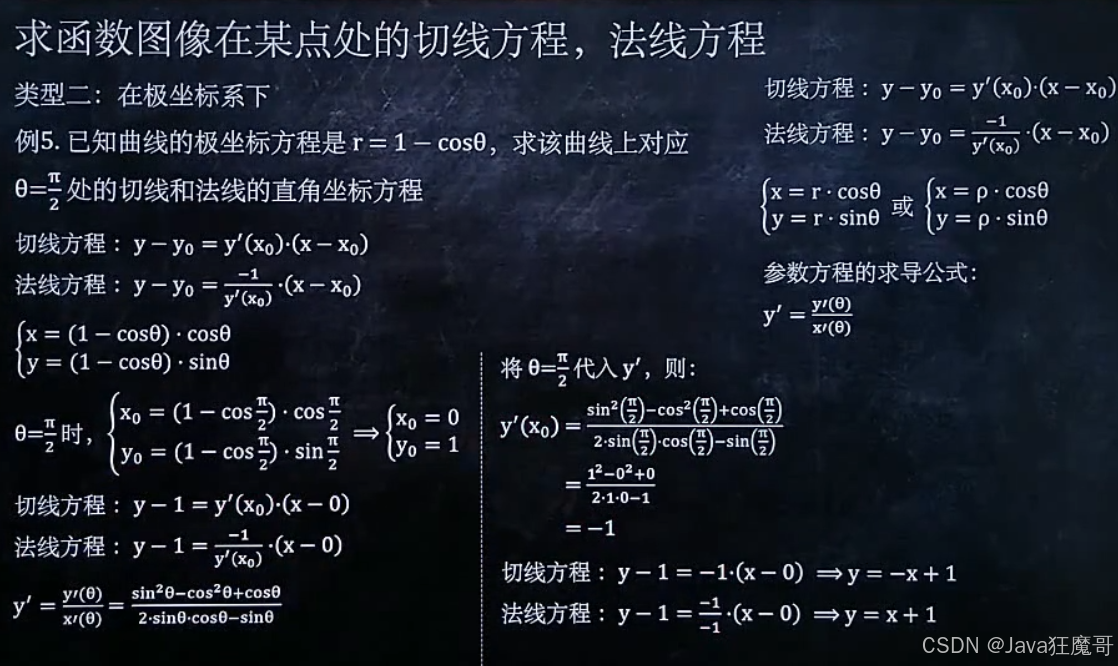 求函数图像在某点处的切线方程，法线方程
类型二：在极坐标系下
例5. 已知曲线的极坐标方程是 r = 1 − cosθ，求该曲线上对应
θ=π/2 处的切线和法线的直角坐标方程
切线方程：y − y₀ = y′(x₀)·(x − x₀)
法线方程：y − y₀ = −1/y′(x₀) ·(x − x₀)
{x = (1 − cosθ) · cosθ
{y = (1 − cosθ) · sinθ
θ=π/2 时，{x₀ = (1 − cos π/2) · cos π/2 ⟹ {x₀ = 0
{y₀ = (1 − cos π/2) · sin π/2 {y₀ = 1
切线方程：y − 1 = y′(x₀)·(x − 0)
法线方程：y − 1 = −1/y′(x₀) ·(x − 0)
y′ = y′(θ)/x′(θ) = (sin²θ−cos²θ+cosθ)/(2·sinθ·cosθ−sinθ)
切线方程：y − y₀ = y′(x₀)·(x − x₀)
法线方程：y − y₀ = −1/y′(x₀) ·(x − x₀)
{x = r · cosθ 或 {x = ρ · cosθ
{y = r · sinθ {y = ρ · sinθ
参数方程的求导公式：
y′ = y′(θ)/x′(θ)
将 θ=π/2 代入 y′，则：
y′(x₀) = (sin²(π/2)−cos²(π/2)+cos(π/2))/(2·sin(π/2)·cos(π/2)−sin(π/2))
= (1²−0²+0)/(2·1·0−1)
= −1
切线方程：y − 1 = −1·(x − 0) ⟹ y = −x + 1
法线方程：y − 1 = −1/−1 ·(x − 0) ⟹ y = x + 1
CSDN @Java狂魔哥